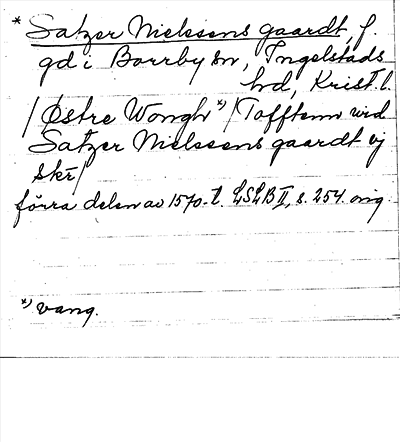 * Satzer Nielssens gaardt, f.
gd i Borrby sn, Ingelstads
hd, Krist. l.
/ Østre Wongh *) / Tofftenn wid
Satzer Nielssens gaardt vj
skr /
förra delen av 1570-t. LSLB II, s. 254. orig.
*) vang.